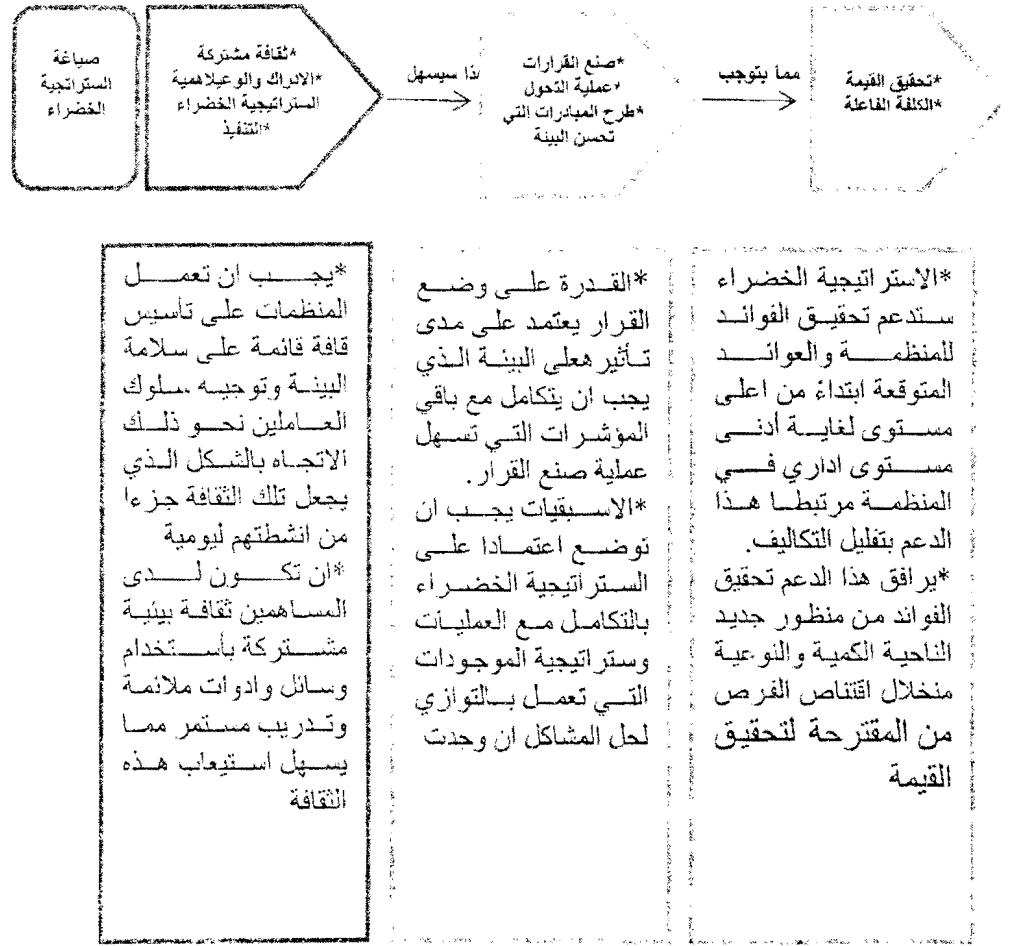 صياغة
الستراتجية
الخضراء
*ثقافة مشتركة
*الادراك والوعيلاهمية
الستراتيجية الخضراء
*التنفيذ
ذا سيسهل
*صنع القرارات
*عملية التحول
*طرح المبادرات التي
تحسن البيئة
مما يتوجب
*تحقيق القيمة
*الكلفة الفاعلة
*يجب ان تعمل
المنظمات على تأسيس
قافة قائمة على سلامة
البيئة وتوجيه سلوك
العاملين نحو ذلك
الاتجاه بالشكل الذي
يجعل تلك الثقافة جزءا
من انشطتهم ليومية
*ان تكون لدى
المساهمين ثقافة بيئية
مشتركة بأستخدام
وسائل وادوات ملائمة
وتدريب مستمر مما
يسهل استيعاب هذه
الثقافة
*القدرة على وضع
القرار يعتمد على مدى
تأثير هعلى البيئة الذي
يجب ان يتكامل مع باقي
المؤشرات التي تسهل
عملية صنع القرار.
*الاسبقيات يجب ان
توضع اعتمادا على
الستراتيجية الخضراء
بالتكامل مع العمليات
وستراتيجية الموجودات
التي تعمل بالتوازي
لحل المشاكل ان وجدت
*الاستراتيجية الخضراء
ستدعم تحقيق الفوائد
للمنظمة والعوائد
المتوقعة ابتداءً من اعلى
مستوى لغاية أدنى
مستوى اداري في
المنظمة مرتبطا هذا
الدعم بتقليل التكاليف.
*يرافق هذا الدعم تحقيق
الفوائد من منظور جديد
الناحية الكمية والنوعية
منخلال اقتناص الفرص
من المقترحة لتحقيق
القيمة